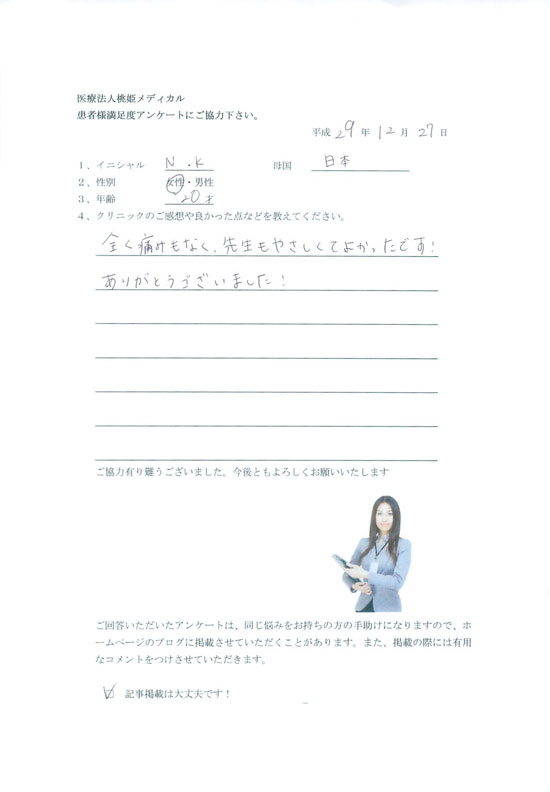 医療法人桃姫メディカル
患者様満足度アンケートにご協力下さい。
平成 29 年 12 月 27 日
1、イニシャル N.K 母国 日本
2、性別 女性・男性
3、年齢 20才
4、クリニックのご感想や良かった点などを教えてください。
全く痛みもなく、先生もやさしくてよかったです!
ありがとうございました!
ご協力有り難うございました。今後ともよろしくお願いいたします
ご回答いただいたアンケートは、同じ悩みをお持ちの方の手助けになりますので、ホ
ームページのブログに掲載させていただくことがあります。また、掲載の際には有用
なコメントをつけさせていただきます。
☑ 記事掲載は大丈夫です!